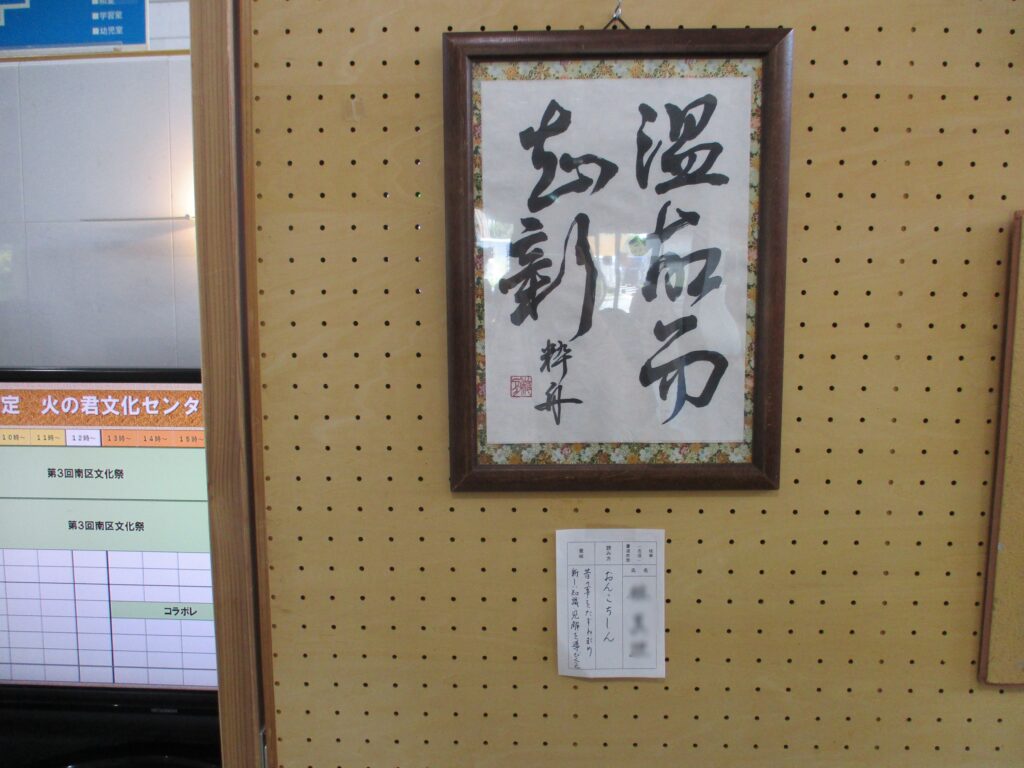 ■学習室
■幼児室
定 火の君文化センタ
10時～ 11時～ 12時～ 13時～ 14時～ 15時～
第3回南区文化祭
第3回南区文化祭
コラボレ
温故而
知新
粋舟
氏名
読み方
おんこちしん
意味
昔の事をたずね求め
新しい知識、見解を導くこと